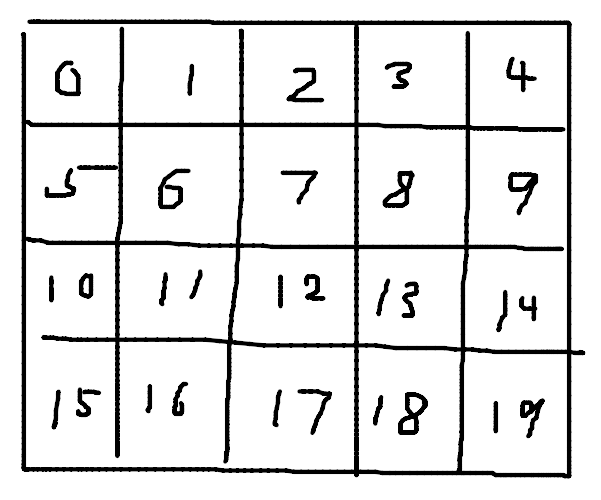 0 1 2 3 4
5 6 7 8 9
10 11 12 13 14
15 16 17 18 19